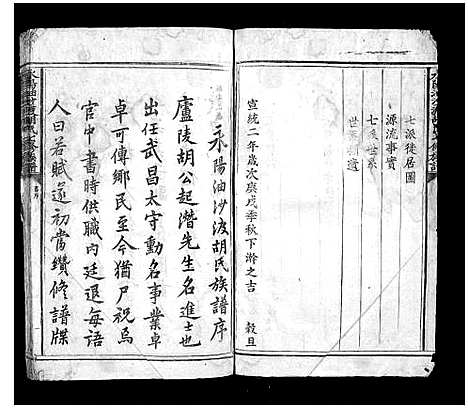 七派徒居圖
源流事實
七葉世系
世系圖遺
宣統二年歲次庚戌季秋下澣之吉 穀旦
禾陽油沙波胡氏族譜序
廬陵胡公起潛先生名進士也
出任武昌太守勳名事業卓
卓可傳鄉民至今猶尸祝焉
官中書時供職內廷退每語
人曰若賦遂初當纘修譜牒